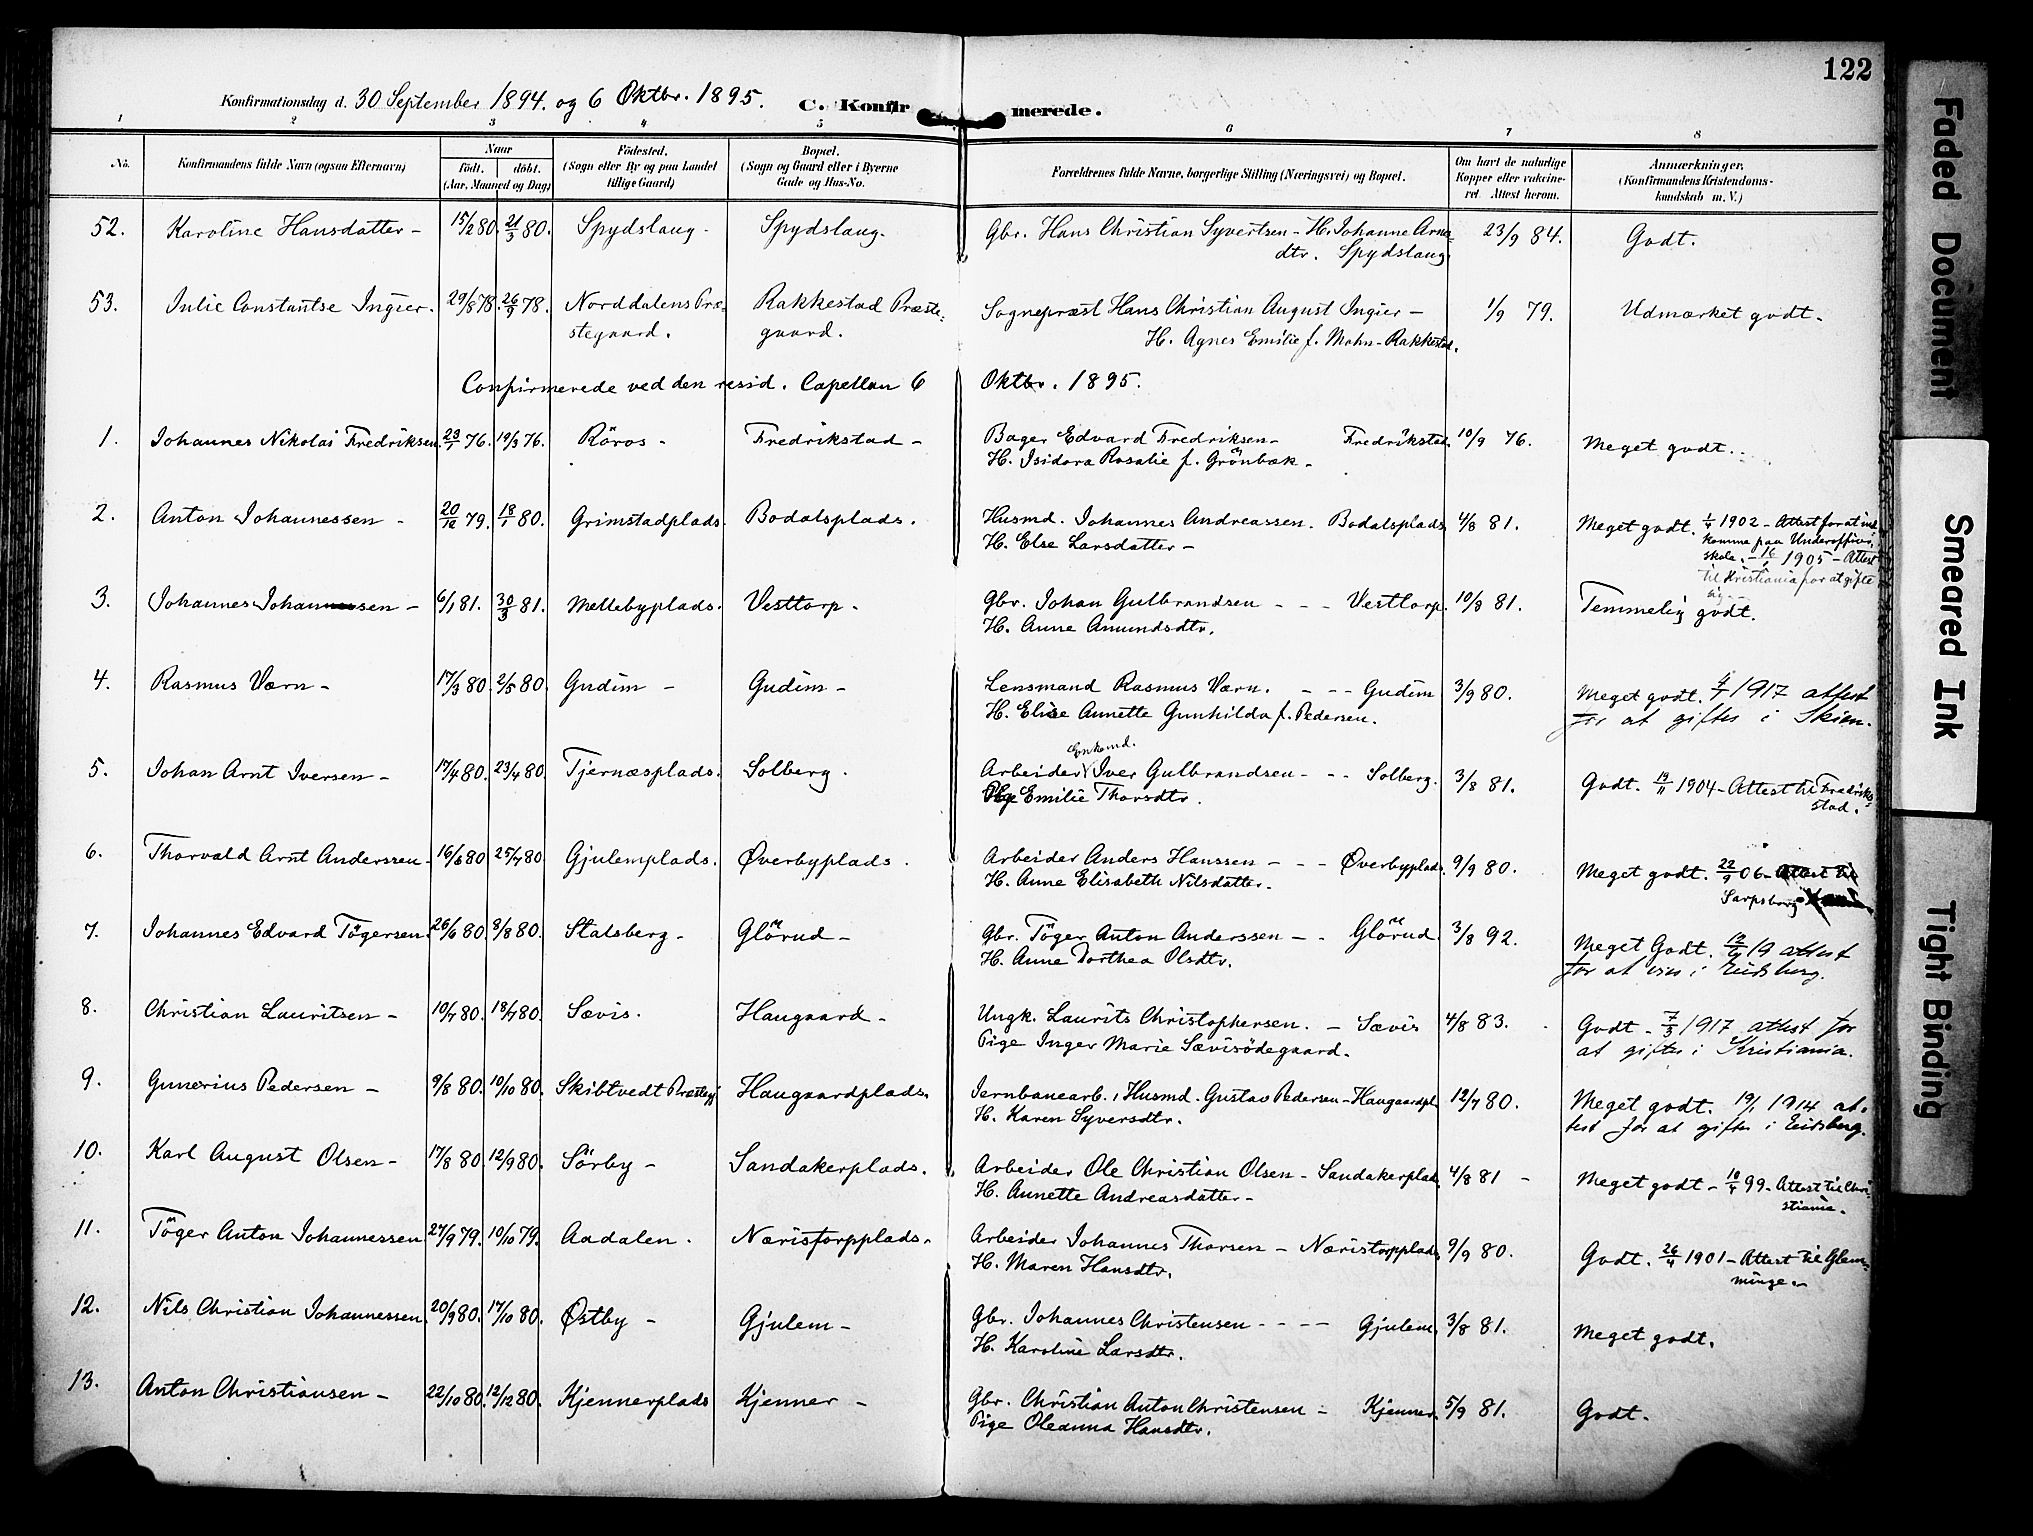 122
Konfirmationsdag d. 30 September 1894. og 6 Oktbr. 1895. C. Konfirmerede.
1 2 3 4 5 6 7 8
No. Konfirmandens fulde Navn (ogsaa Efternavn) Naar födt. döbt. (Aar, Maaned og Dag) Födested. (Sogn eller By og paa Landet tillige Gaard) Bopæl. (Sogn og Gaard eller i Byerne Gade og Hus-No. Forældrenes fulde Navne, borgerlige Stilling (Næringsvei) og Bopæl. Om havt de naturlige Kopper eller vakcineret. Attest herom. Anmærkninger, (Konfirmandens Kristendomskundskab m. V.)
52. Karoline Hansdatter - 15/2 80. 21/3 80. Spydslaug - Spydslaug. Gbr. Hans Christian Syvertsen - H. Johanne Arne- 23/9 84. Godt.
dtr. Spydslaug
53. Julie Constantse Ingier. 29/8 78. 26/9 78. Norddalens Præ- Rakkestad Præste- Sognepræst Hans Christian August Ingier - 1/9 79. Udmærket godt.
stegaard. gaard. H. Agnes Emilie f. Mohn - Rakkestad.
Confirmerede ved den resid. Capellan 6 Oktbr. 1895.
1. Johannes Nikolai Fredriksen. 23/1 76. 19/3 76. Röros - Fredrikstad - Bager Edvard Fredriksen - Fredrikstad. 10/9 76. Meget godt.
H. Isidora Rosalie f. Grönbæk -
2. Anton Johannessen - 20/12 79. 18/1 80. Grimstadplads. Bodalsplads. Husmd. Johannes Andreassen. Bodalsplads 4/8 81. Meget godt. 1/4 1902 - Attest for at ind-
H. Else Larsdatter - komme paa Underoffics.
skole. - 16/1 1905 - Attest
til Kristiania for at gifte
sig -
3. Johannes Johannessen - 6/1 81. 30/3 81. Mellebyplads. Vesttorp. Gbr. Johan Gulbrandsen - - - Vesttorp. 10/8 81. Temmelig godt.
H. Anne Amundsdtr.
4. Rasmus Værn - 17/3 80. 2/5 80. Gudim - Gudim - Lensmand Rasmus Værn. - - - Gudim 3/9 80. Meget godt. 4/7 1917 attest
H. Elise Annette Gunhilda f. Pedersen. for at giftes i Skien.
5. Johan Arnt Iversen - 17/4 80. 23/4 80. Tjernæsplads. Solberg. Arbeider Enkemd. Iver Gulbrandsen - - - Solberg. 3/8 81. Godt. 19/11 1904 - Attest til Fredrik-
Emilie Thorsdtr. stad.
6. Thorvald Arnt Anderssen - 16/6 80 25/7 80. Gjulemplads. Øverbyplads. Arbeider Anders Hanssen - - - Øverbyplads. 9/9 80. Meget godt. 22/9 06 - Attest til
H. Anne Elisabeth Nilsdatter. Sarpsborg
7. Johannes Edvard Tögersen. 26/6 80. 8/8 80. Stalsberg - Glörud - Gbr. Töger Anton Anderssen - - Glörud. 3/8 92. Meget Godt. 19 attest
H. Anne Dorthea Olsdtr. for at vies i Eidsberg.
8. Christian Lauritsen - 10/7 80. 18/7 80. Sævis. Haugaard - Ungk. Laurits Christophersen. - Sævis 4/8 83. Godt - 7/3 1917 attest for
Pige Inger Marie Sævisödegaard. at giftes i Kristiania.
9. Gunerius Pedersen - 9/8 80. 10/10 80. Skibtvedt Præstegj Haugaardplads. Jernbanearb., Husmd. Gustav Pedersen - Haugaardpl. 12/7 80. Meget godt. 19/1 1914 at-
H. Karen Syversdtr. test for at giftes i Eidsberg.
10. Karl August Olsen - 17/8 80. 12/9 80. Sörby - Sandakerplads. Arbeider Ole Christian Olsen - Sandakerplads. 4/8 81 - Meget godt - 18/4 99 - Attest til Chri-
H. Annette Andreasdatter - stiania.
11. Töger Anton Johannessen 27/9 79. 10/10 79. Aadalen. Næristorpplads. Arbeider Johannes Thorsen - Næristorpplads 9/9 80. Godt. 26/4 1901 - Attest til Glem-
H. Maren Hansdtr. minge.
12. Nils Christian Johannessen. 20/9 80. 17/10 80. Østby - Gjulem - Gbr. Johannes Christensen - - - - Gjulem. 3/8 81. Meget godt.
H. Karoline Larsdtr.
13. Anton Christiansen - 22/10 80. 12/12 80. Kjennerplads Kjenner - Gbr. Christian Anton Christensen - Kjenner. 5/9 81. Godt.
Pige Oleanna Hansdtr.
Faded Document
Smeared Ink
Tight Binding